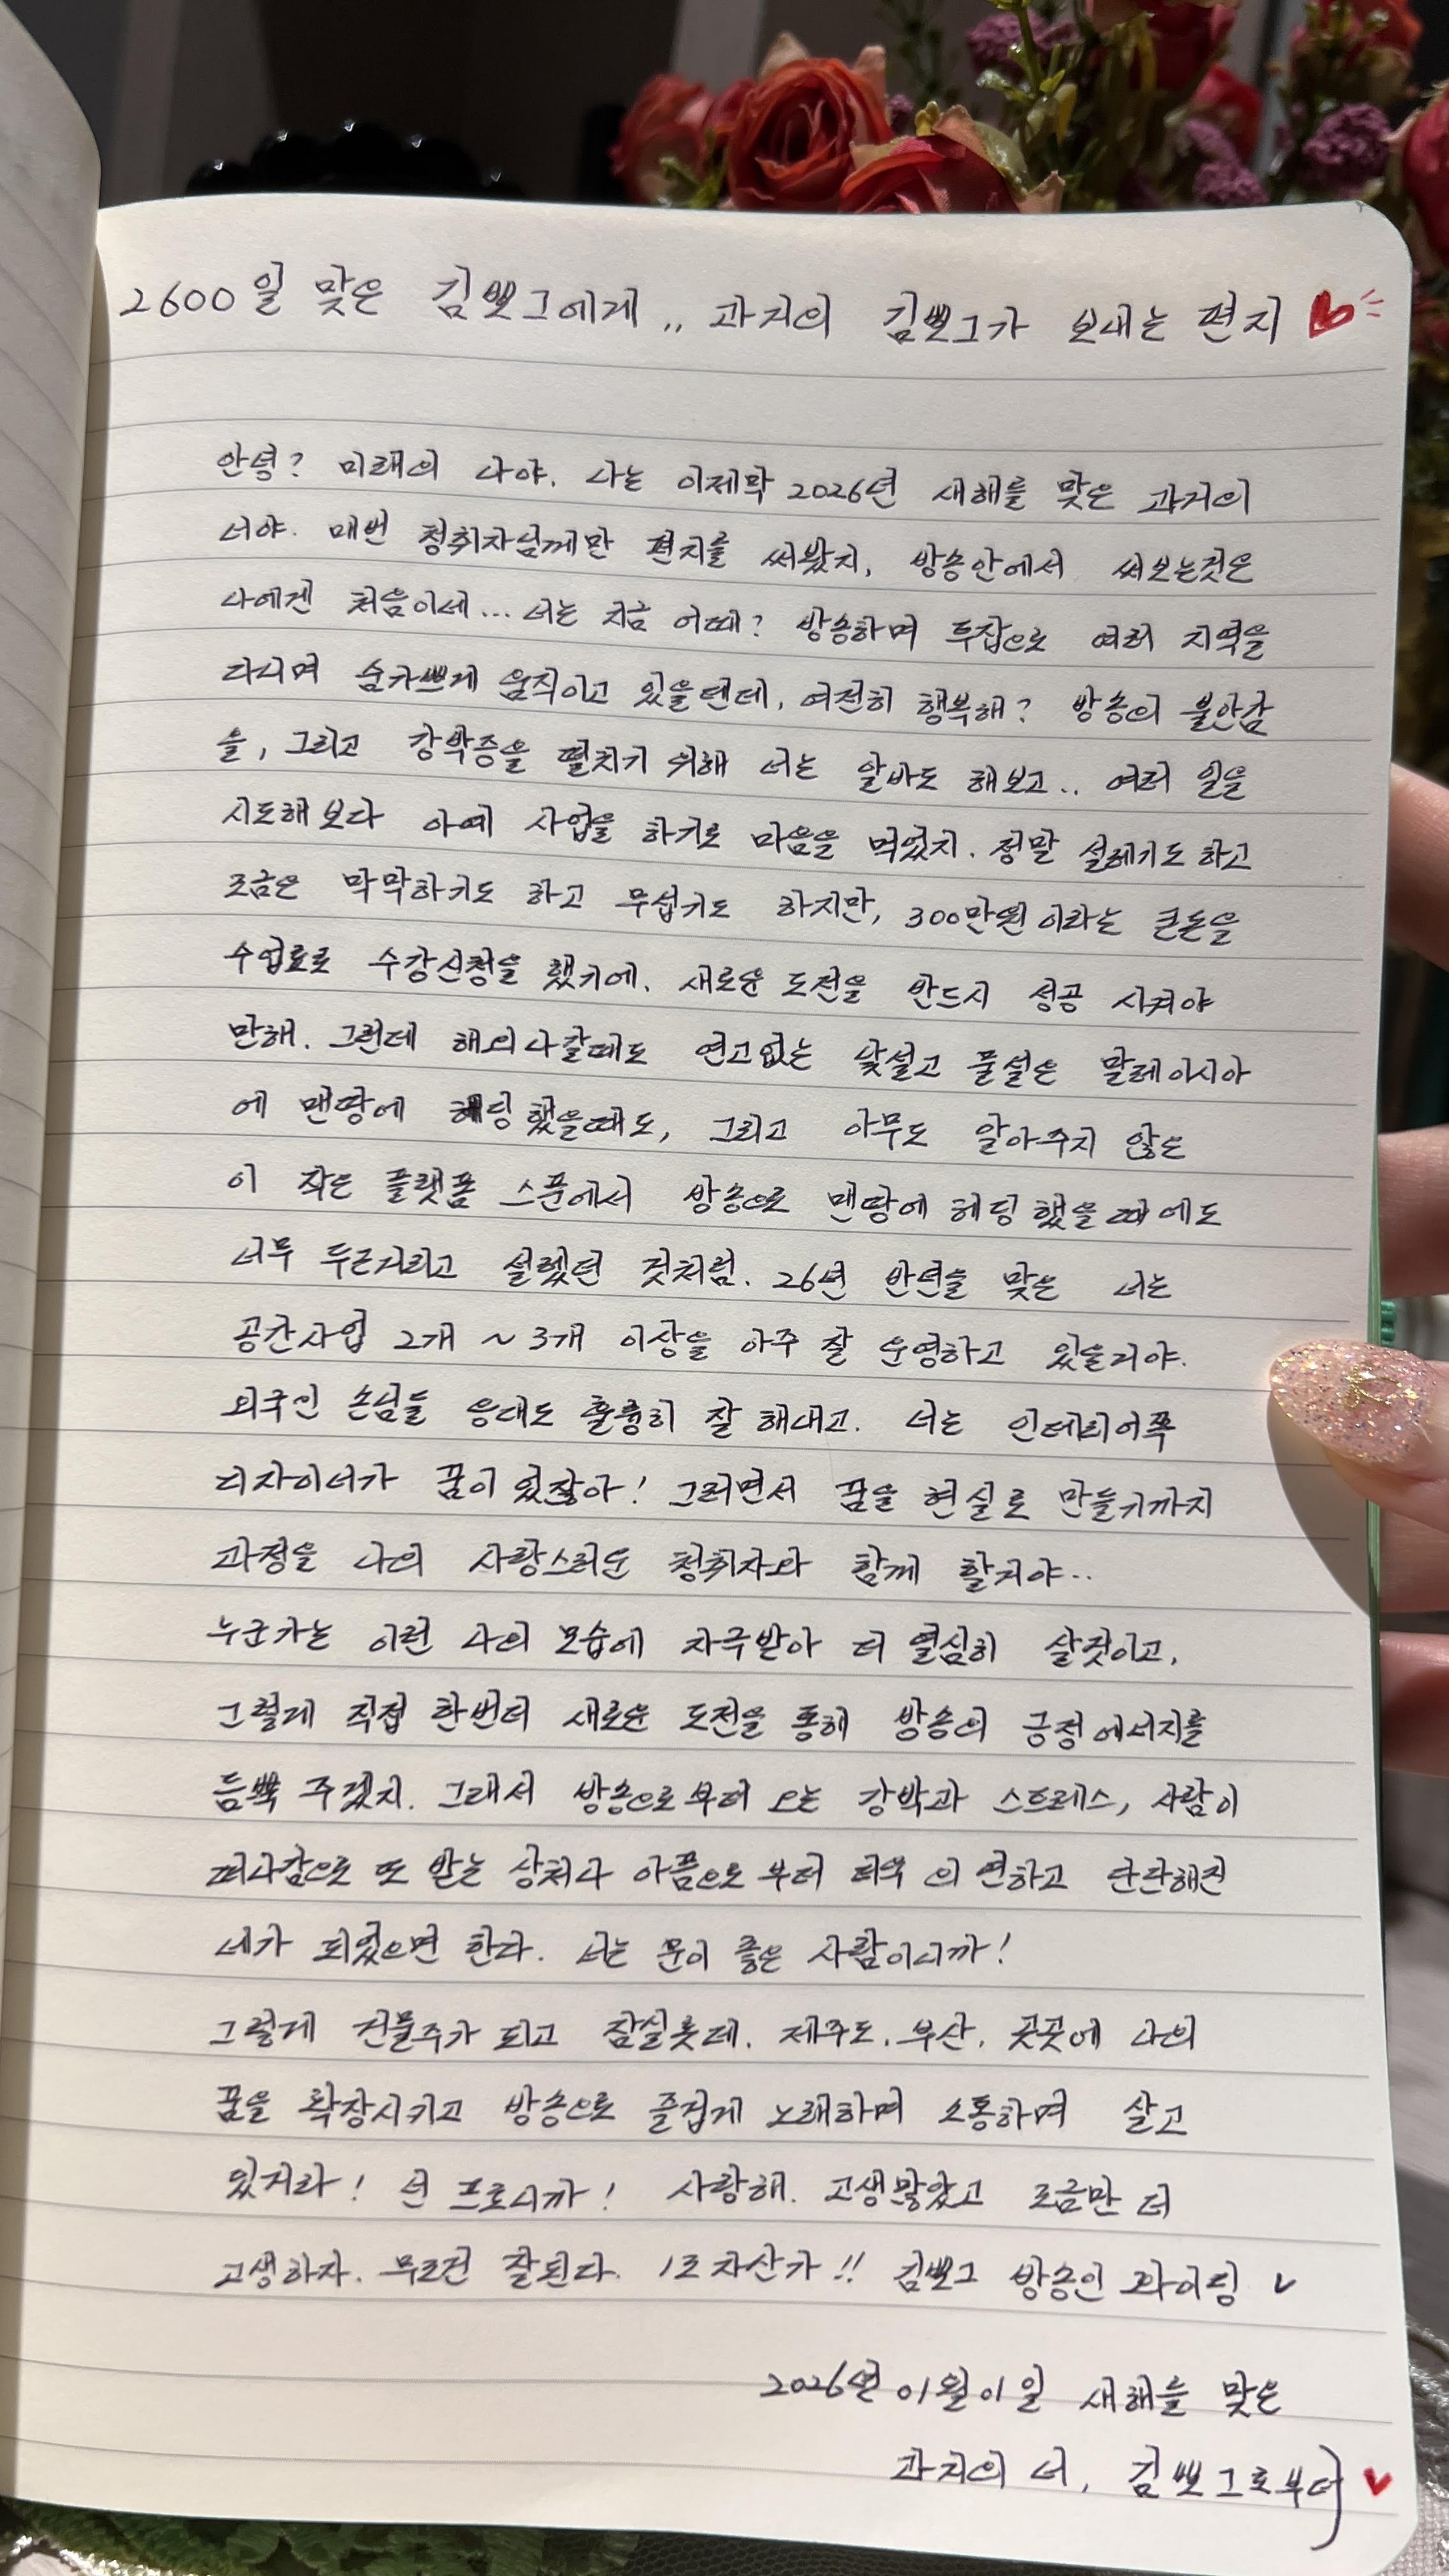 2600일 맞은 김뽀그에게.. 과거의 김뽀그가 보내는 편지
안녕? 미래의 나야. 나는 이제막 2026년 새해를 맞은 과거의
너야. 매번 청취자님께만 편지를 써봤지, 방송안에서 써보는것은
나에겐 처음이네... 너는 지금 어때? 방송하며 투잡으로 여러 지역을
다니며 숨가쁘게 움직이고 있을텐데, 여전히 행복해? 방송의 불안감
을, 그리고 강박증을 떨치기 위해 너는 알바도 해보고.. 여러 일을
시도해보다 아예 사업을 하기로 마음을 먹었지. 정말 설레기도 하고
조금은 막막하기도 하고 무섭기도 하지만, 300만원이라는 큰돈을
수업료로 수강신청을 했기에. 새로운 도전을 반드시 성공 시켜야
만해. 그런데 해외나갈때도 연고없는 낯설고 물설은 말레이시아
에 맨땅에 헤딩했을때도, 그리고 아무도 알아주지 않은
이 작은 플랫폼 스푼에서 방송으로 맨땅에 헤딩했을때에도
너무 두근거리고 설렜던 것처럼. 26년 반년을 맞은 너는
공간사업 2개 ~ 3개 이상을 아주 잘 운영하고 있을거야.
외국인 손님들 응대도 훌륭히 잘 해내고. 너는 인테리어쪽
디자이너가 꿈이 있잖아! 그러면서 꿈을 현실로 만들기까지
과정을 나의 사랑스러운 청취자와 함께 할거야..
누군가는 이런 나의 모습에 자극받아 더 열심히 살것이고,
그렇게 직접 한번더 새로운 도전을 통해 방송의 긍정에너지를
듬뿍 주겠지. 그래서 방송으로부터 오는 강박과 스트레스, 사람이
떠나감으로 또 받는 상처나 아픔으로 부터 더욱 의연하고 단단해진
네가 되었으면 한다. 너는 운이 좋은 사람이니까!
그렇게 건물주가 되고 잠실롯데. 제주도. 부산. 곳곳에 나의
꿈을 확장시키고 방송으로 즐겁게 노래하며 소통하며 살고
있거라! 넌 프로니까! 사랑해. 고생많았고 조금만 더
고생하자. 무조건 잘된다. 1조 자산가!! 김뽀그 방송인 화이팅
2026년 01월01일 새해를 맞은
과거의 너, 김뽀그로부터